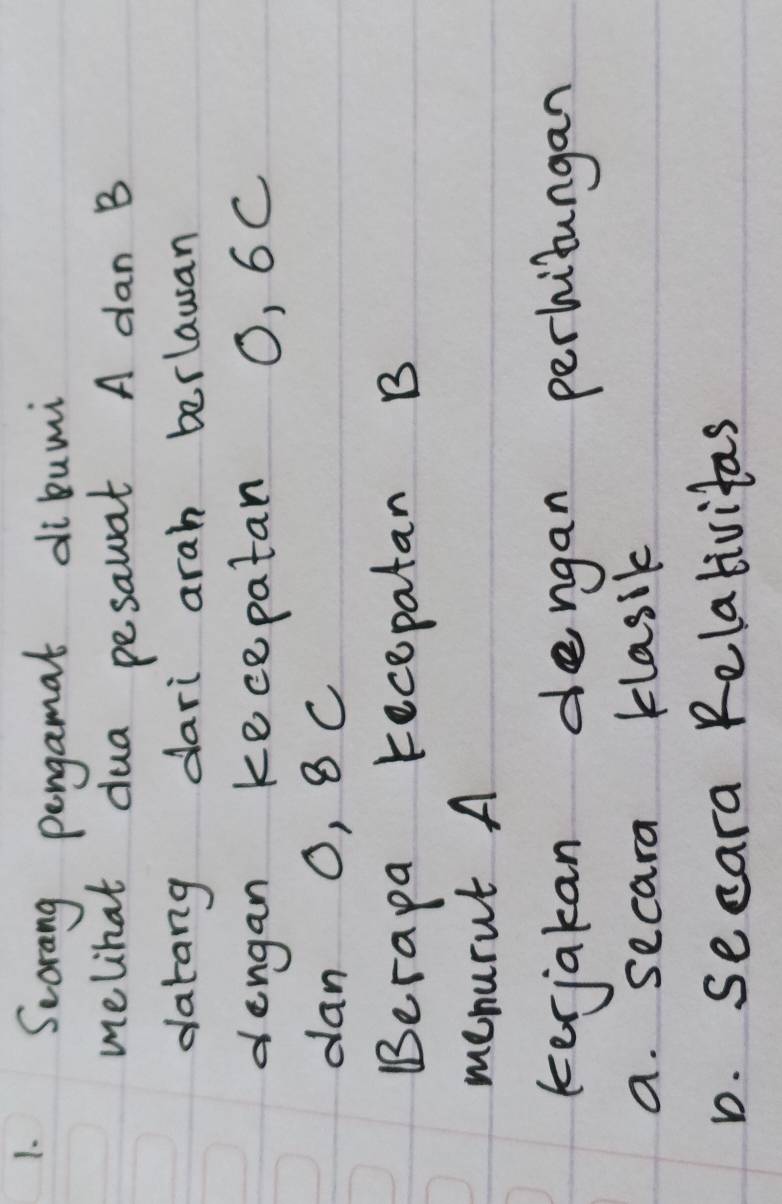 1. Seorang pengamat di bumi
melihat dua pesawat A dan B
datang dari arah berlawan
dengan kecepatan 0,6C
dan 0,8C
Berapa kecepatan B
menurut A
kerjakan dengan perhitungan
a. secara klasik
b. secara Relativitas